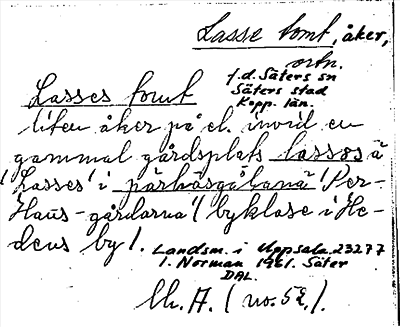 Lasse tomt, åker,
ortn.
f.d. Säters sn
Säters stad
Kopp. län.
Lasses tomt
liten åker på el. invid en
gammal gårdsplats lassos ä
'Lasses' i pärhåsgåḷanä 'Per-
Hans-gårdarna' (byklase i He-
dens by).
Landsm. i Uppsala 23277
I. Norman 1961. Säter
DAL.
lh. A. (no. 52.).